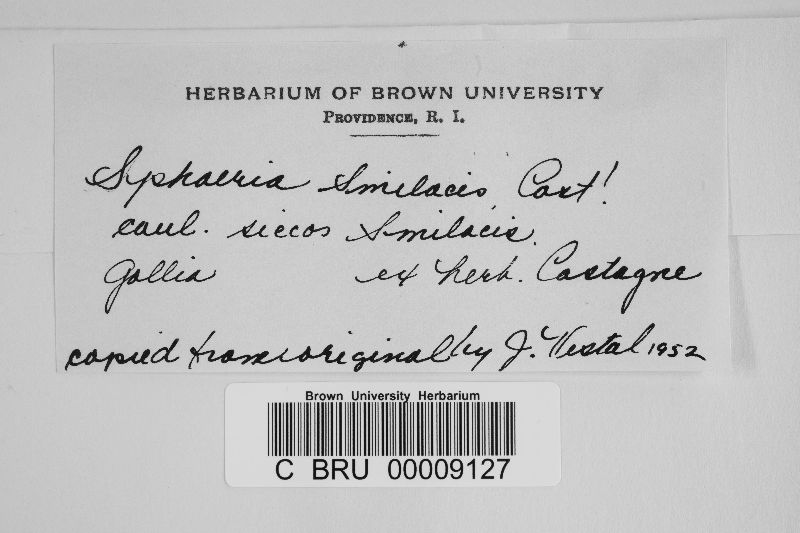 HERBARIUM OF BROWN UNIVERSITY
PROVIDENCE, R. I.
Sphaeria Smilacis, Cast!
caul. siccos Smilacis.
Gallia ex herb. Castagne
copied from original by J. Vestal 1952
Brown University Herbarium
C BRU 00009127